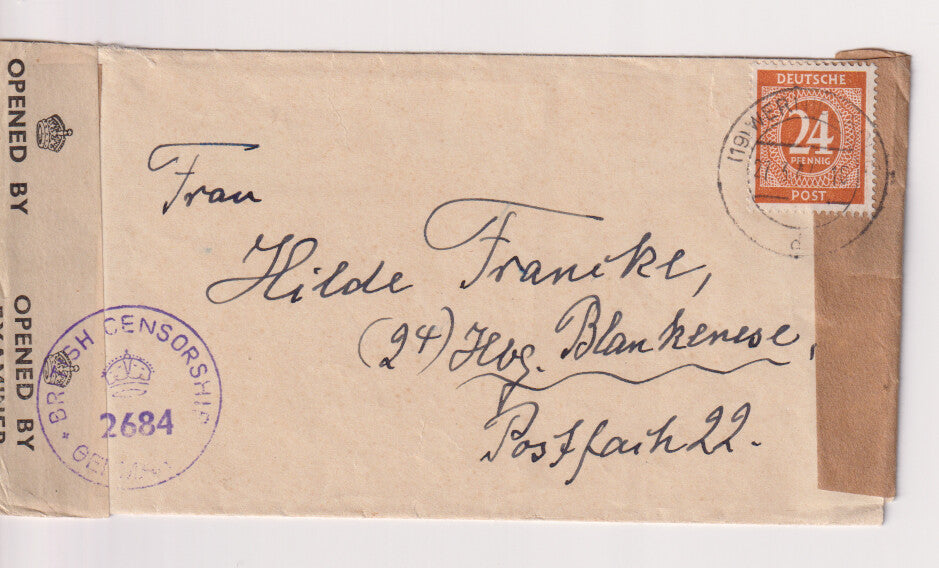 OPENED BY
OPENED BY
DEUTSCHE
24
PFENNIG
POST
(19)
Frau
Hilde Francke,
(24) Hbg. Blankenese,
Postfach 22.
BRITISH CENSORSHIP
2684